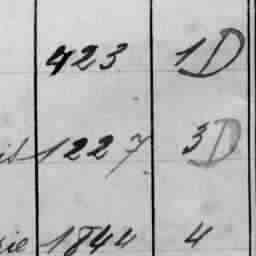 423 1D
1227 3D
1844 4